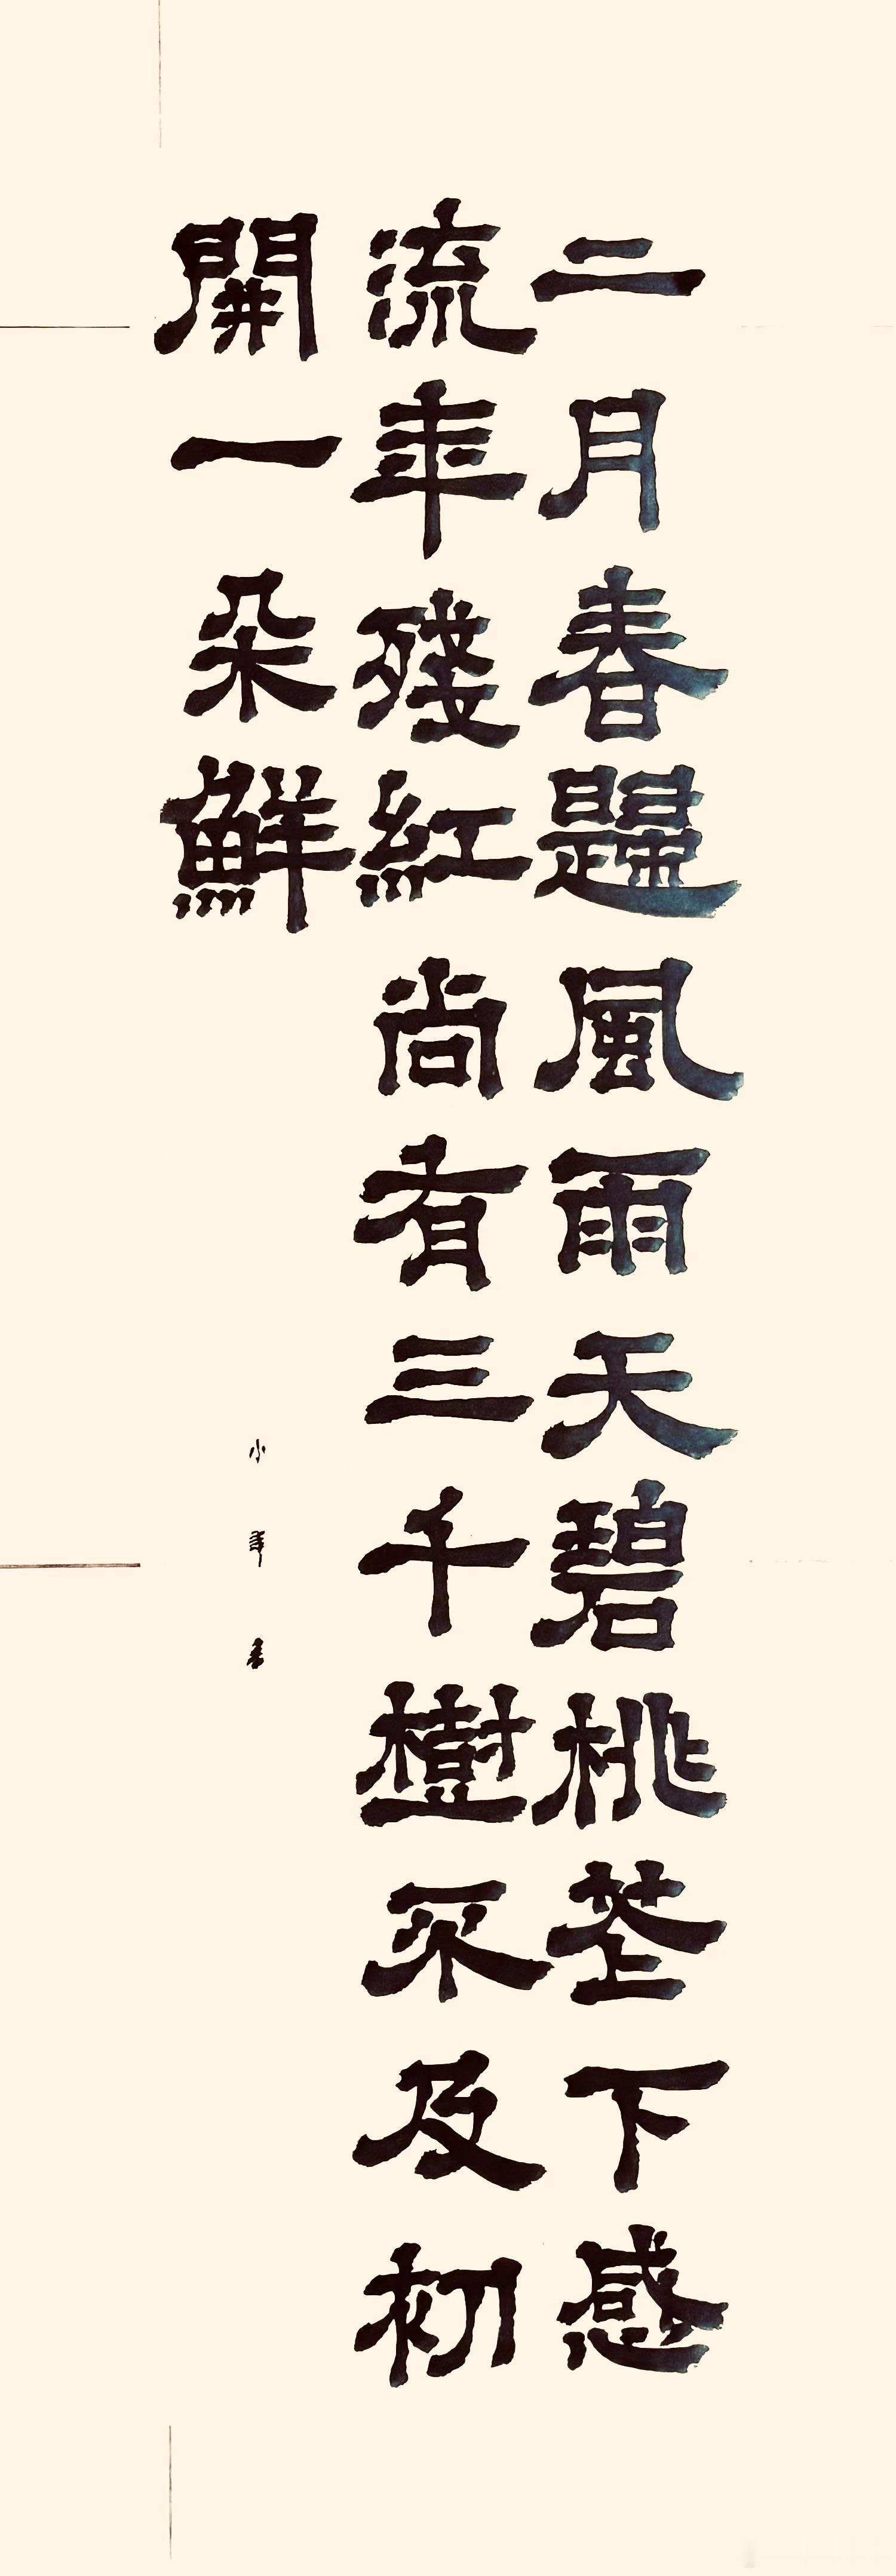 二月春歸風雨天碧桃花下感
流年殘紅尚有三千樹不及初
開一朵鮮
小